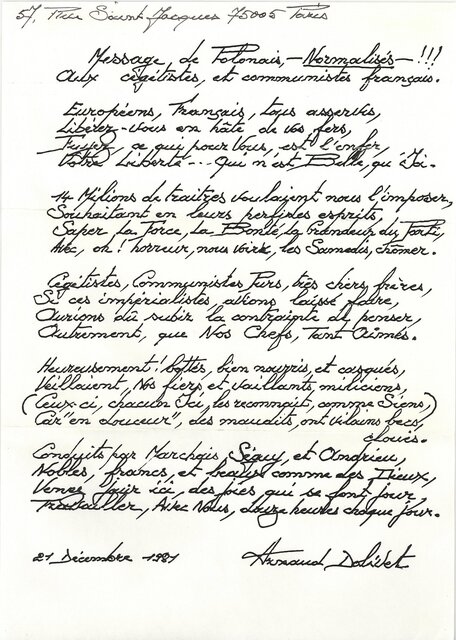 57, Rue Saint Jacques 75005 Paris
Message, de Polonais, - Normalisés - !!!
Aux cégétistes, et communistes français.
Européens, Français, tous asservis,
Libérez-vous en hâte, de vos fers,
Fuyez, ce qui pour vous, est l'enfer,
Votre Liberté --- Qui n'est Belle, qu'Ici.
14 Milions de traîtres voulaient nous l'imposer,
Souhaitant en leurs perfides esprits,
Saper la Force, La Bonté, la Grandeur du Parti,
Avec, oh! horreur, nous voir, les Samedis, chômer.
Cégétistes, Communistes Purs, très chers, frères,
Si ces impérialistes, avions laissé faire,
Aurions dû subir la contrainte de penser,
Autrement, que Nos Chefs, Tant Aimés.
Heureusement! bottés, bien nourris, et casqués,
Veillaient, Nos fiers et vaillants miliciens,
(Ceux-ci, chacun Ici, les reconnait, comme Siens,)
Car "en douceur", des maudits, ont vilains becs,
cloués.
Conduits par Marchais, Séguy, et Andrieu,
Nobles, francs, et beaux comme des Dieux,
Venez jouir ici, des joies qui se font jour,
Travailler, Avec Nous, douze heures chaque jour.
21 Décembre 1981
Arnaud Dalivet